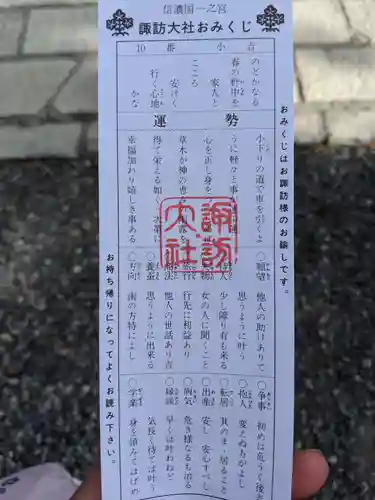 信濃国一之宮
諏訪大社おみくじ
10 番 小 吉
のどかなる
春の野中を
家人と
こころ
安けく
行く心地
かな
運勢
小下りの道で車を引くよ
うに軽々と事
心を正し身を
草木が神の恵
得て栄える如
幸福加わり嬉しき事ある
諏訪大社
○願望 他人の助けありて
思うように叶う
○待人 少し障り有も来る
女の人に聞くこと
○旅行 行先に利益あり
他人の世話あり吉
○養蚕 思うように出来る
○方向 南の方特によし
○争事 初めは危うく後
○抱人 変えぬもがよし
○転居 其のまゝ居ること
○出産 安し 安心すべし
○病気 危き様なるも治る
○縁談 早くは叶わねど
気長く待てば叶う
○学業 身を顧みてはげめ
おみくじはお諏訪様のお諭しです。
お持ち帰りになってよくお読み下さい。